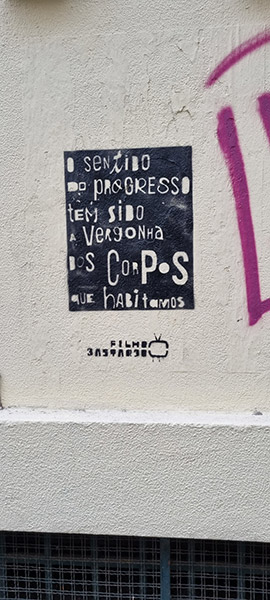 O SENTIDO
DO PROGRESSO
TEM SIDO
A VERGONHA
DOS CORPOS
QUE HABITAMOS
FILHO
BASTARDO